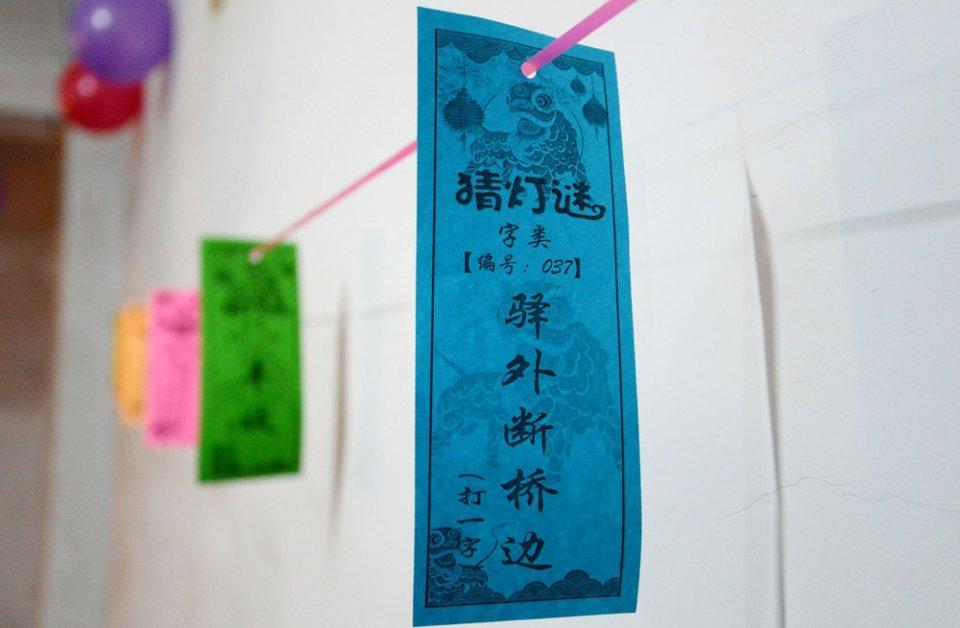 猜灯谜
字类
【编号：037】
驿外断桥边
（打一字